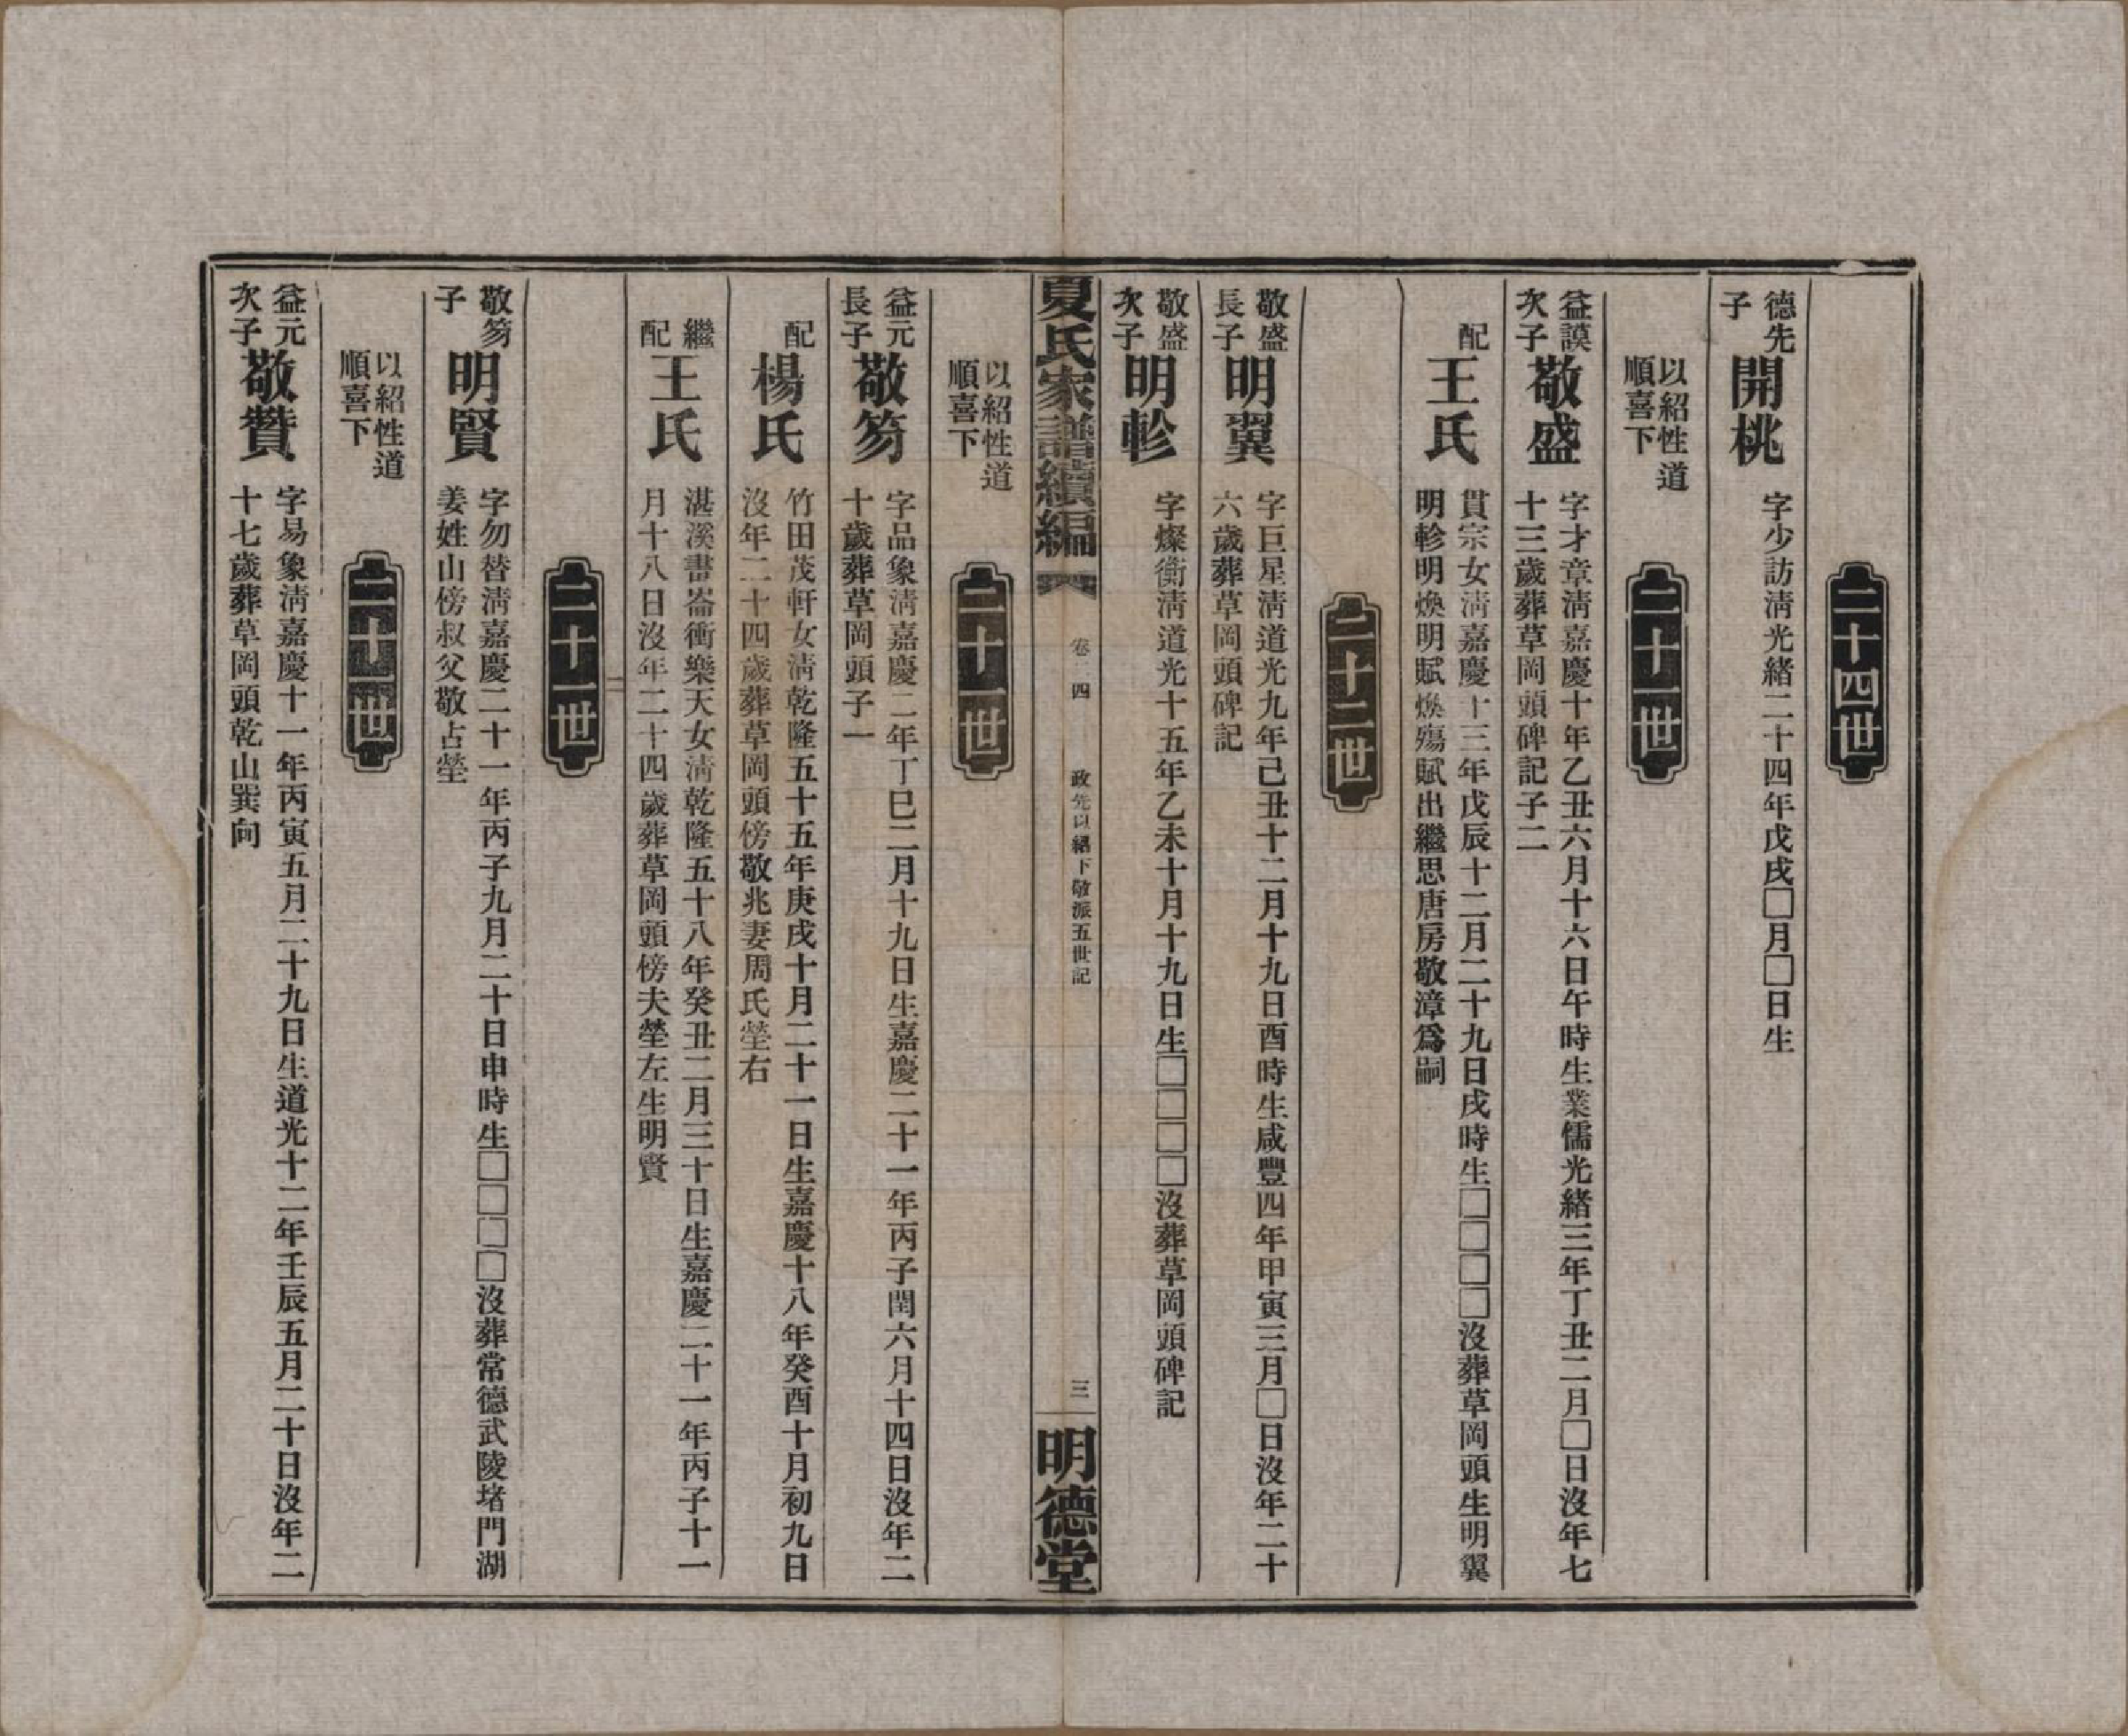 二十四世
德先子
開桃
字少訪淸光緒二十四年戊戌□月□日生
以紹性道
順喜下
二十一世
益謨次子
敬盛
字才章淸嘉慶十年乙丑六月十六日午時生業儒光緒三年丁丑二月□日沒年七
十三歲葬草岡頭碑記子二
配
王氏
貫宗女淸嘉慶十三年戊辰十二月二十九日戌時生□□□□沒葬草岡頭生明翼
明軫明煥明賦煥殤賦出繼思唐房敬漳爲嗣
二十二世
敬盛長子
明翼
字巨星淸道光九年己丑十二月十九日酉時生咸豐四年甲寅三月□日沒年二十
六歲葬草岡頭碑記
敬盛次子
明軫
字燦衡淸道光十五年乙未十月十九日生□□□□沒葬草岡頭碑記
夏氏家譜續編
卷二四
政先以紹下敬派五世記
三
明德堂
以紹性道
順喜下
二十一世
益元長子
敬笏
字品象淸嘉慶二年丁巳二月十九日生嘉慶二十一年丙子閏六月十四日沒年二
十歲葬草岡頭子一
配
楊氏
竹田茂軒女淸乾隆五十五年庚戌十月二十一日生嘉慶十八年癸酉十月初九日
沒年二十四歲葬草岡頭傍敬兆妻周氏塋右
繼配
王氏
湛溪書崙衝樂天女淸乾隆五十八年癸丑二月三十日生嘉慶二十一年丙子十一
月十八日沒年二十四歲葬草岡頭傍夫塋左生明賢
二十二世
敬笏子
明賢
字勿替淸嘉慶二十一年丙子九月二十日申時生□□□□沒葬常德武陵堵門湖
姜姓山傍叔父敬占塋
以紹性道
順喜下
二十一世
益元次子
敬贊
字易象淸嘉慶十一年丙寅五月二十九日生道光十二年壬辰五月二十日沒年二
十七歲葬草岡頭乾山巽向